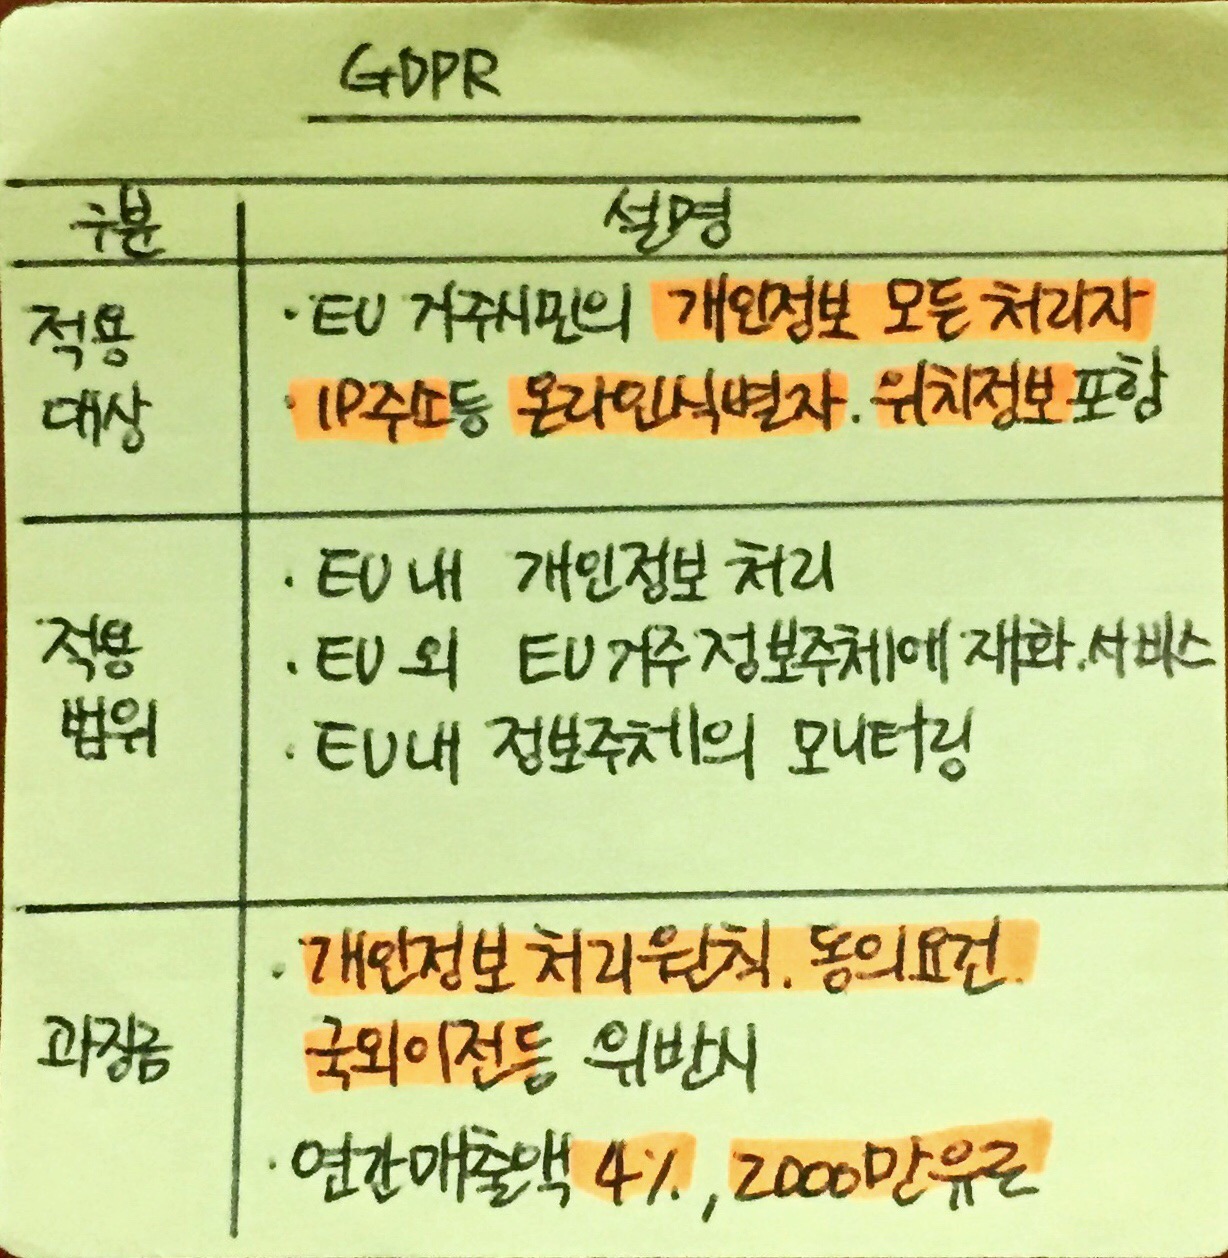 GDPR
구분 설명
적용
대상
· EU 거주시민의 개인정보 모든 처리자
· IP주소등 온라인식별자. 위치정보포함
적용
범위
· EU 내 개인정보 처리
· EU 외 EU거주정보주체에 재화.서비스
· EU내 정보주체의 모니터링
과징금
· 개인정보 처리원칙. 동의요건.
국외이전등 위반시
· 연간매출액 4%, 2000만유로